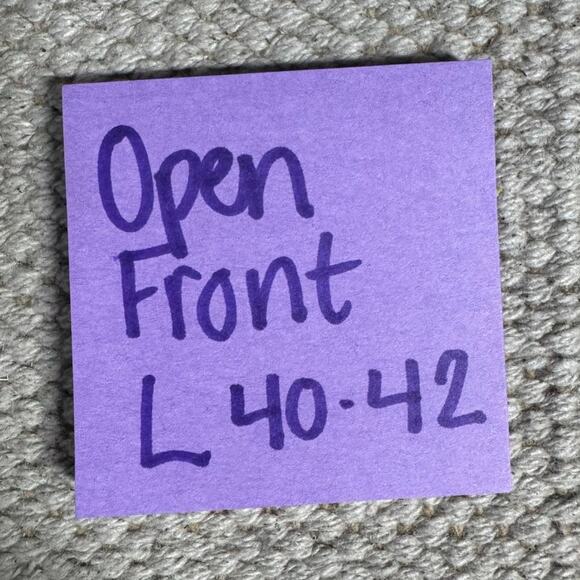 Open
Front
L 40-42